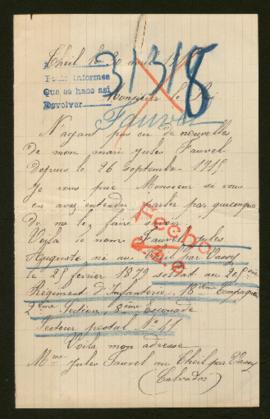 Theil le 20 avril
Pedir informes
Que se haga así
Devolver
31318
Monsieur le Roi
Fauvel
N'ayant pas eu de nouvelles
de mon mari Jules Fauvel
depuis le 26 Septembre 1915
Je vous prie Monsieur si vous
en avez entendu parler par quelconque
de me le faire savoir
Fecho
Voila le nom Fauvel Jules
Auguste né au Theil par Vassy
le 25 février 1879 soldat au 205me
Régiment d'Infanterie, 18ème Compagnie
2me Section, 8ème Escouade
Secteur postal N°
Voila mon adresse
Mme Jules Fauvel au Theil par Vassy
(Calvados)